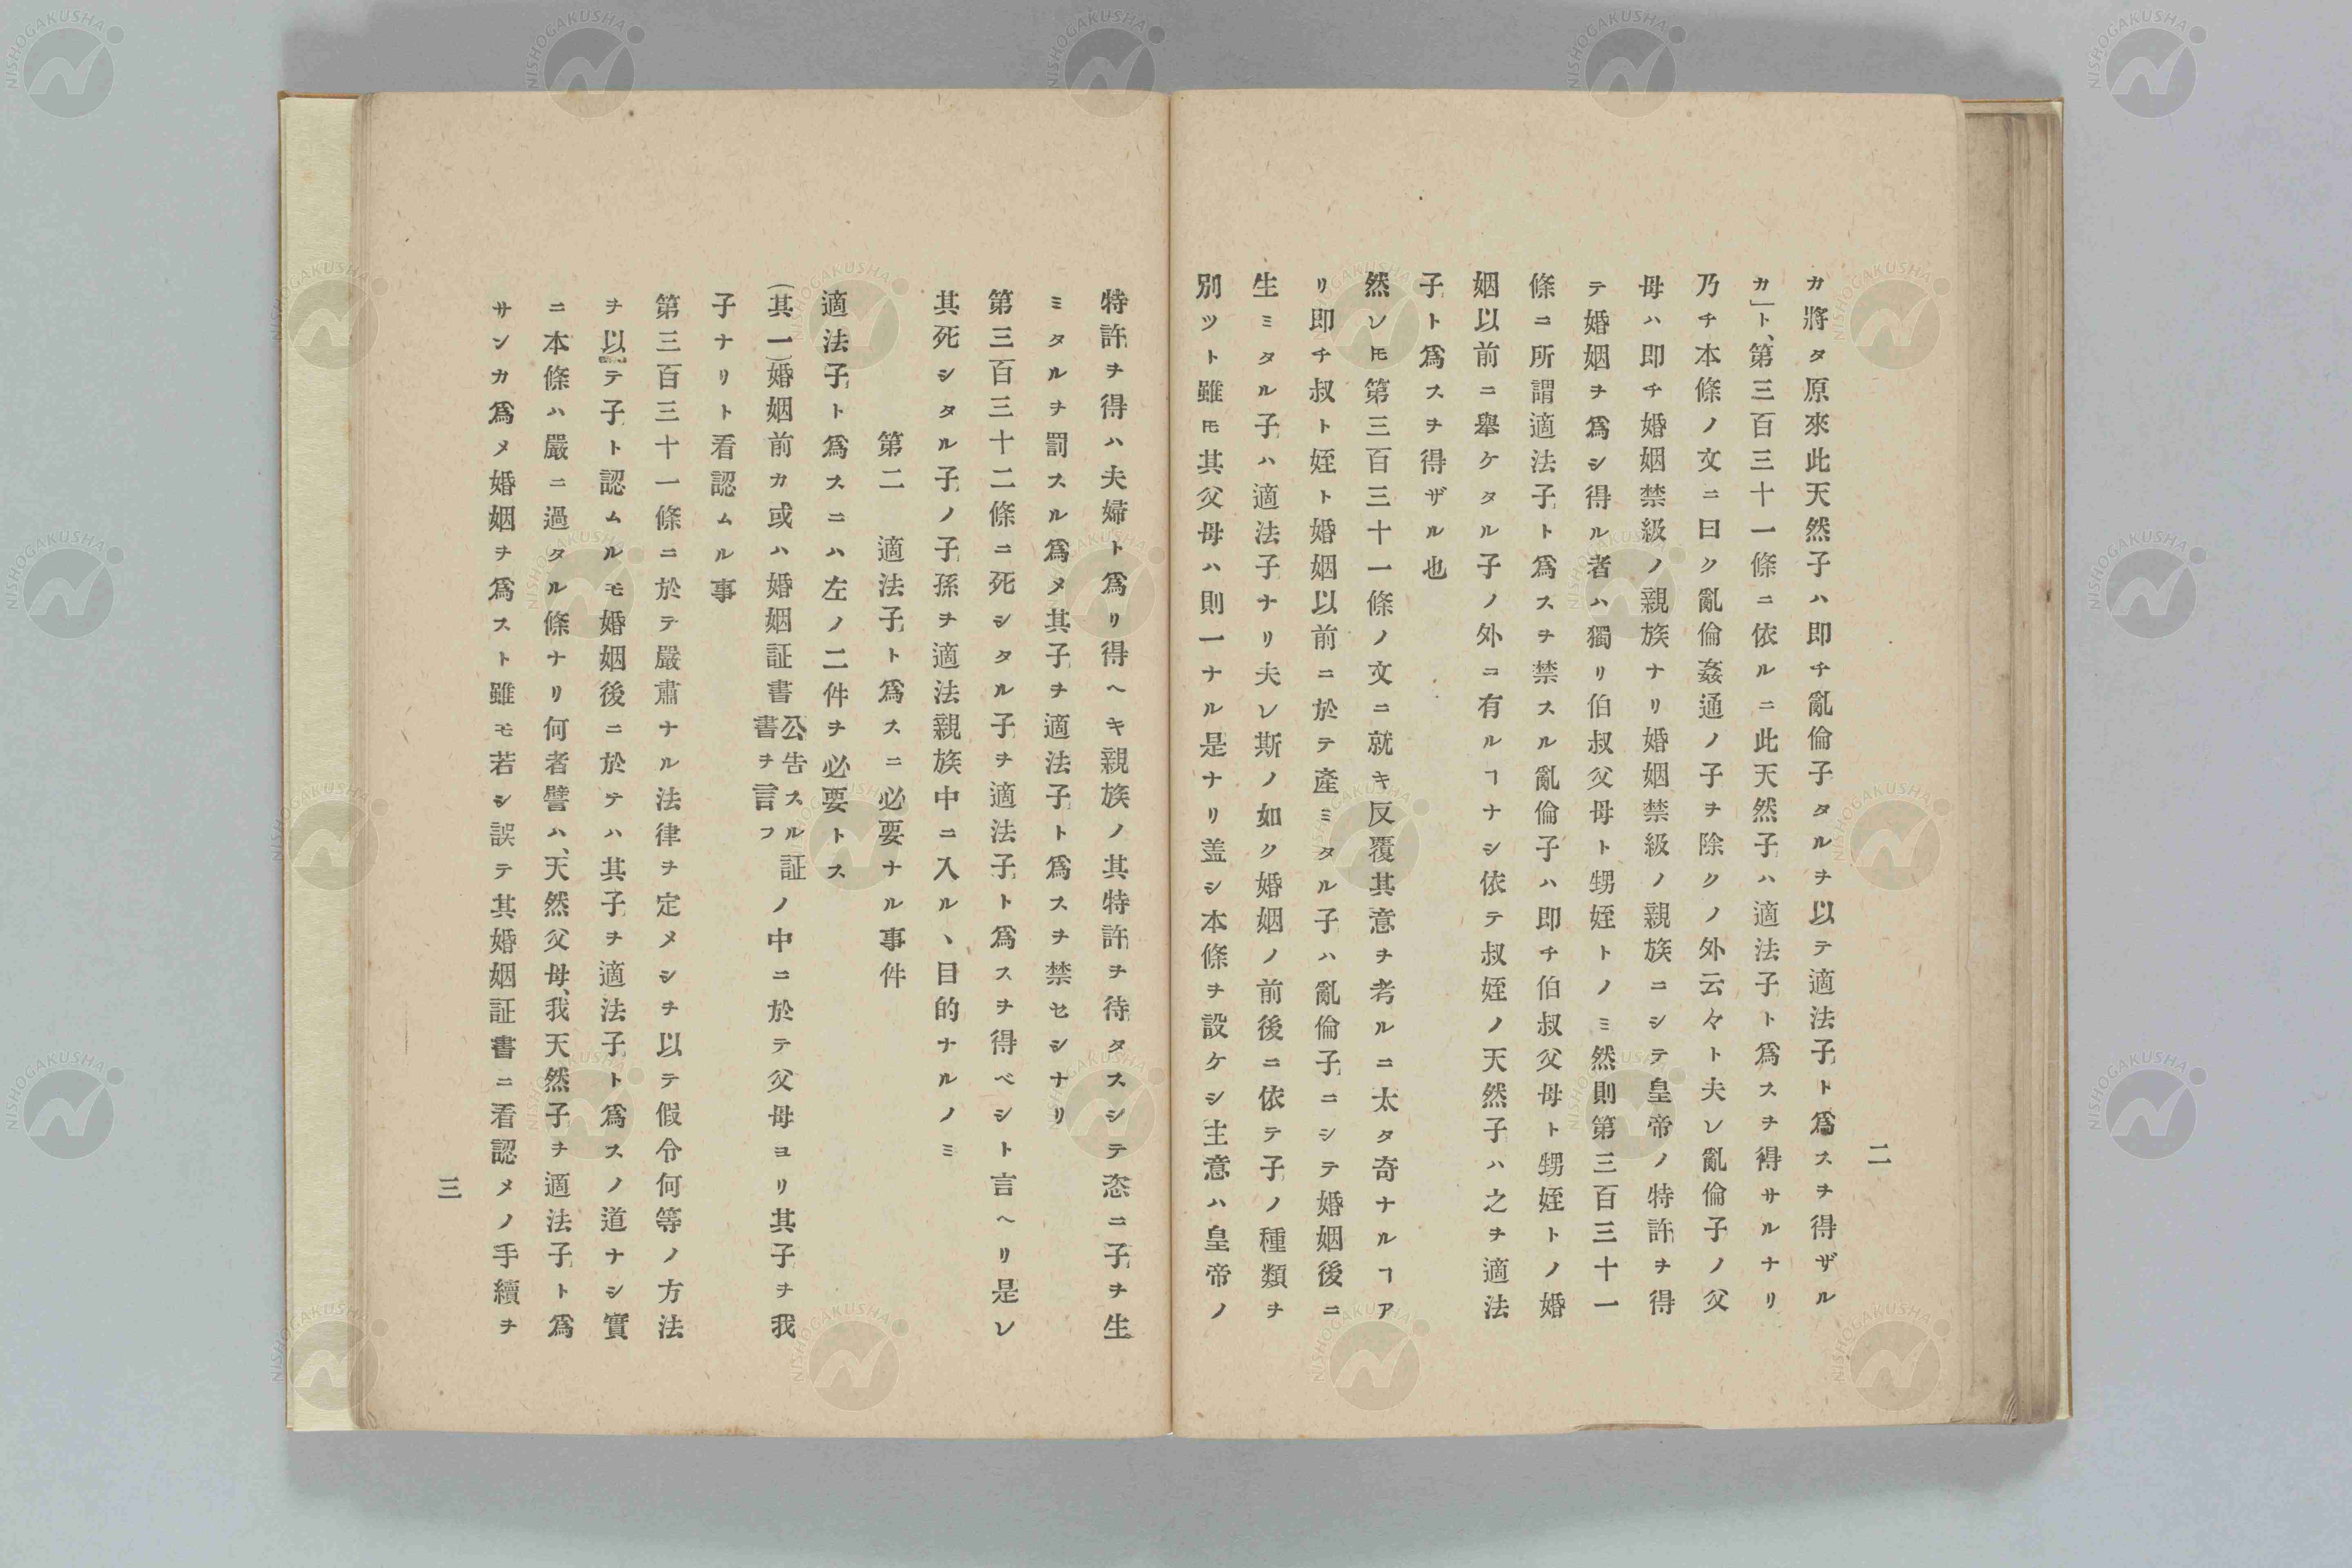 二
カ將タ原來此天然子ハ即チ亂倫子タルヲ以テ適法子ト爲スヲ得ザル
カ」ト、第三百三十一條ニ依ルニ此天然子ハ適法子ト爲スヲ得サルナリ
乃チ本條ノ文ニ曰ク亂倫姦通ノ子ヲ除クノ外云々ト夫レ亂倫子ノ父
母ハ即チ婚姻禁級ノ親族ナリ婚姻禁級ノ親族ニシテ皇帝ノ特許ヲ得
テ婚姻ヲ爲シ得ル者ハ獨リ伯叔父母ト甥姪トノミ然則第三百三十一
條ニ所謂適法子ト爲スヲ禁スル亂倫子ハ即チ伯叔父母ト甥姪トノ婚
姻以前ニ舉ケタル子ノ外ニ有ルヿナシ依テ叔姪ノ天然子ハ之ヲ適法
子ト爲スヲ得ザル也
然レ𪜈第三百三十一條ノ文ニ就キ反覆其意ヲ考ルニ太タ奇ナルヿア
リ即チ叔ト姪ト婚姻以前ニ於テ產ミタル子ハ亂倫子ニシテ婚姻後ニ
生ミタル子ハ適法子ナリ夫レ斯ノ如ク婚姻ノ前後ニ依テ子ノ種類ヲ
別ツト雖𪜈其父母ハ則一ナル是ナリ盖シ本條ヲ設ケシ主意ハ皇帝ノ
特許ヲ得ハ夫婦ト爲リ得ヘキ親族ノ其特許ヲ待タスシテ恣ニ子ヲ生
ミタルヲ罰スル爲メ其子ヲ適法子ト爲スヲ禁セシナリ
第三百三十二條ニ死シタル子ヲ適法子ト爲スヲ得ベシト言ヘリ是レ
其死シタル子ノ子孫ヲ適法親族中ニ入ルヽ目的ナルノミ
第二 適法子ト爲スニ必要ナル事件
適法子ト爲スニハ左ノ二件ヲ必要トス
(其一)婚姻前カ或ハ婚姻証書公告スル証書ヲ言フノ中ニ於テ父母ヨリ其子ヲ我
子ナリト看認ムル事
第三百三十一條ニ於テ嚴肅ナル法律ヲ定メシヲ以テ假令何等ノ方法
ヲ以テ子ト認ムルモ婚姻後ニ於テハ其子ヲ適法子ト爲スノ道ナシ實
ニ本條ハ嚴ニ過タル條ナリ何者譬ハ、天然父母、我天然子ヲ適法子ト爲
サンカ爲メ婚姻ヲ爲スト雖モ若シ誤テ其婚姻証書ニ看認メノ手續ヲ
三
NISHOGAKUSHA